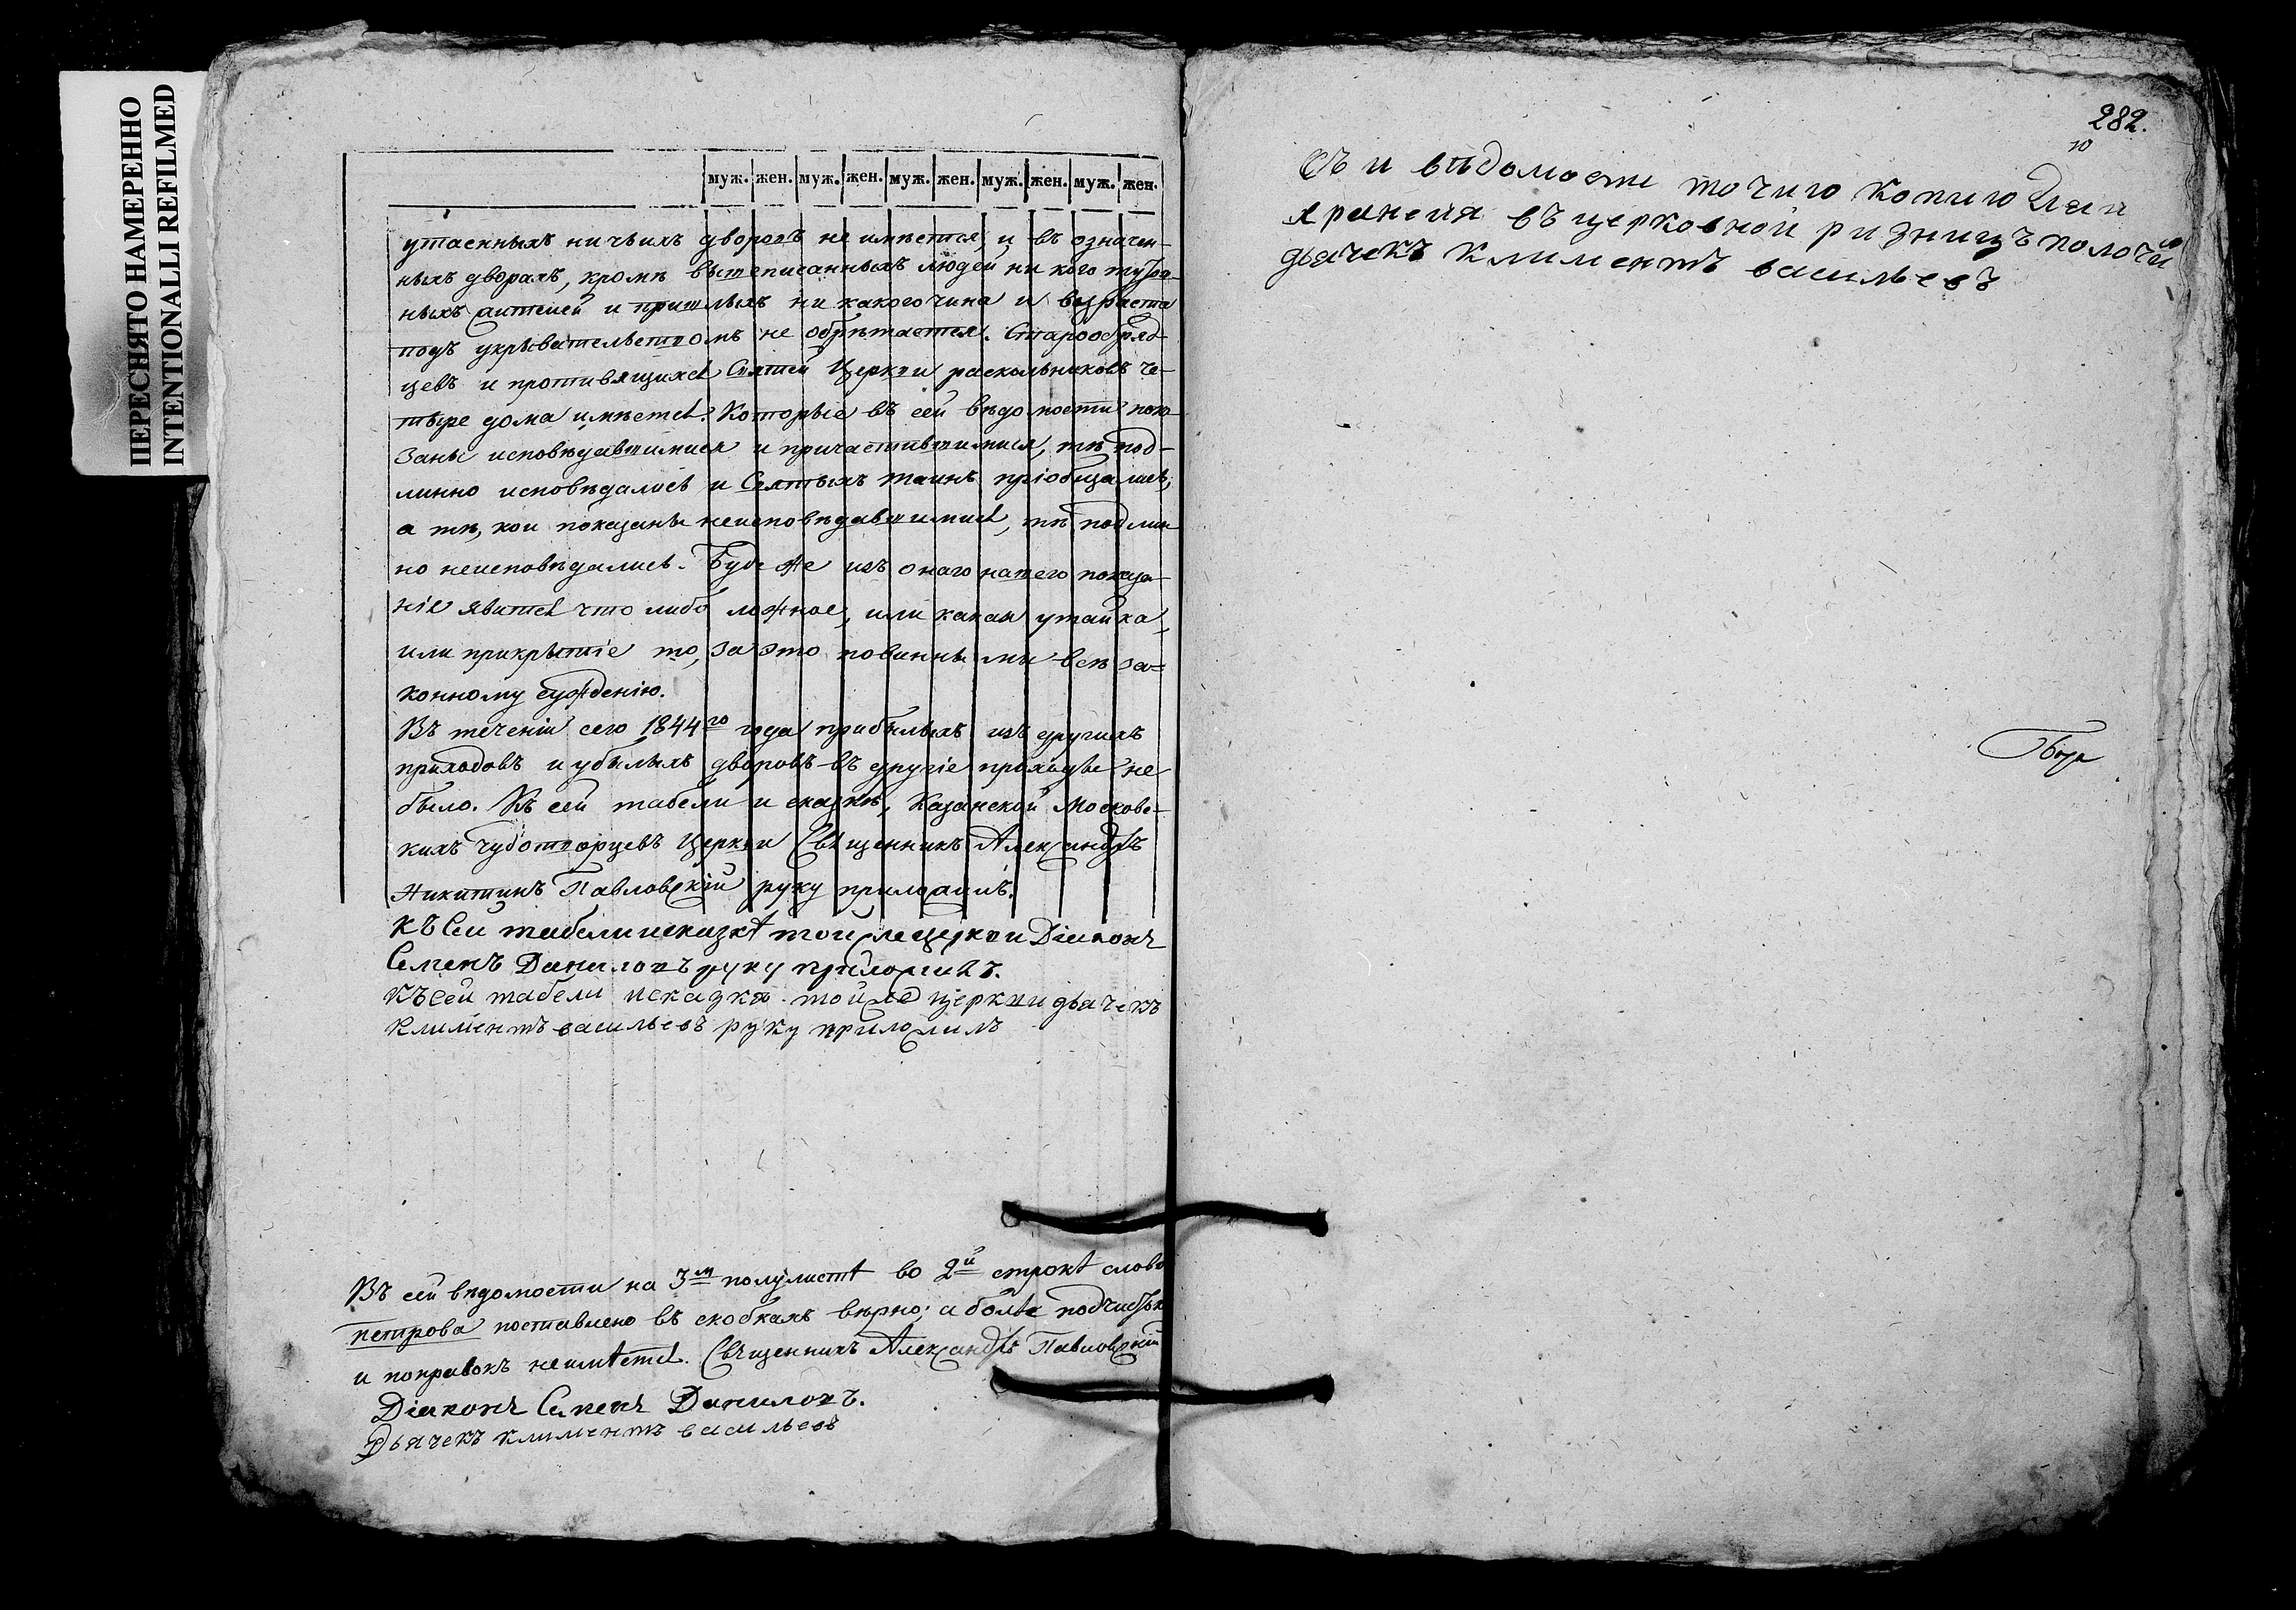 ПЕРЕСНЯТО НАМЕРЕННО
INTENTIONALLI REFILMED
муж. жен. муж. жен. муж. жен. муж. жен. муж. жен.
утаенныхъ ничьихъ дворовъ не имѣется, и въ означен-
ныхъ дворахъ, кромѣ вышеписанныхъ людей ни кого
ныхъ жителей и пришлыхъ ни какого чина и возраста
подъ укрывательствомъ не обрѣтается. Старообряд-
цевъ и противящихся Святей Церкви раскольниковъ че-
тыре дома имѣется. Которые въ сей вѣдомости пока-
заны исповѣдавшимися и причастившимися, тѣ под-
линно исповѣдались и Святыхъ таинъ пріобщались,
а тѣ, кои показаны неисповѣдавшимися, тѣ подлин
но неисповѣдались. Буде же изъ онаго нашего показа-
нія явится что либо ложное, или какая утайка,
или прикрытіе то, за это повинны мы всѣ за=
конному сужденію.
Въ теченіи сего 1844го года прибылыхъ изъ другихъ
приходовъ и убылыхъ дворовъ въ другіе приходы не
было. Къ сей табели и сказкѣ, Казанской Московс-
кихъ Чудотворцевъ Церкви Священникъ Александръ
Никитинъ Павловскій руку приложилъ.
Къ Сей табели и сказкѣ той же церкви Діаконъ
Семенъ Даниловъ руку приложилъ.
Къ сей табели и сказкѣ той же церкви дьячекъ
климентъ васильевъ руку приложилъ
Въ сей вѣдомости на 3м полулистѣ во 2й строкѣ слово
петрова поставлено въ скобкахъ вѣрно; а болѣе подчистокъ
и поправокъ неимѣется. Священникъ Александръ Павловскій
Діаконъ Семенъ Даниловъ.
Дьячекъ климентъ васильевъ
282.
Съ и вѣдомости точную копию для
хранения въ церковной ризницѣ получи
дьячекъ климентъ васильевъ